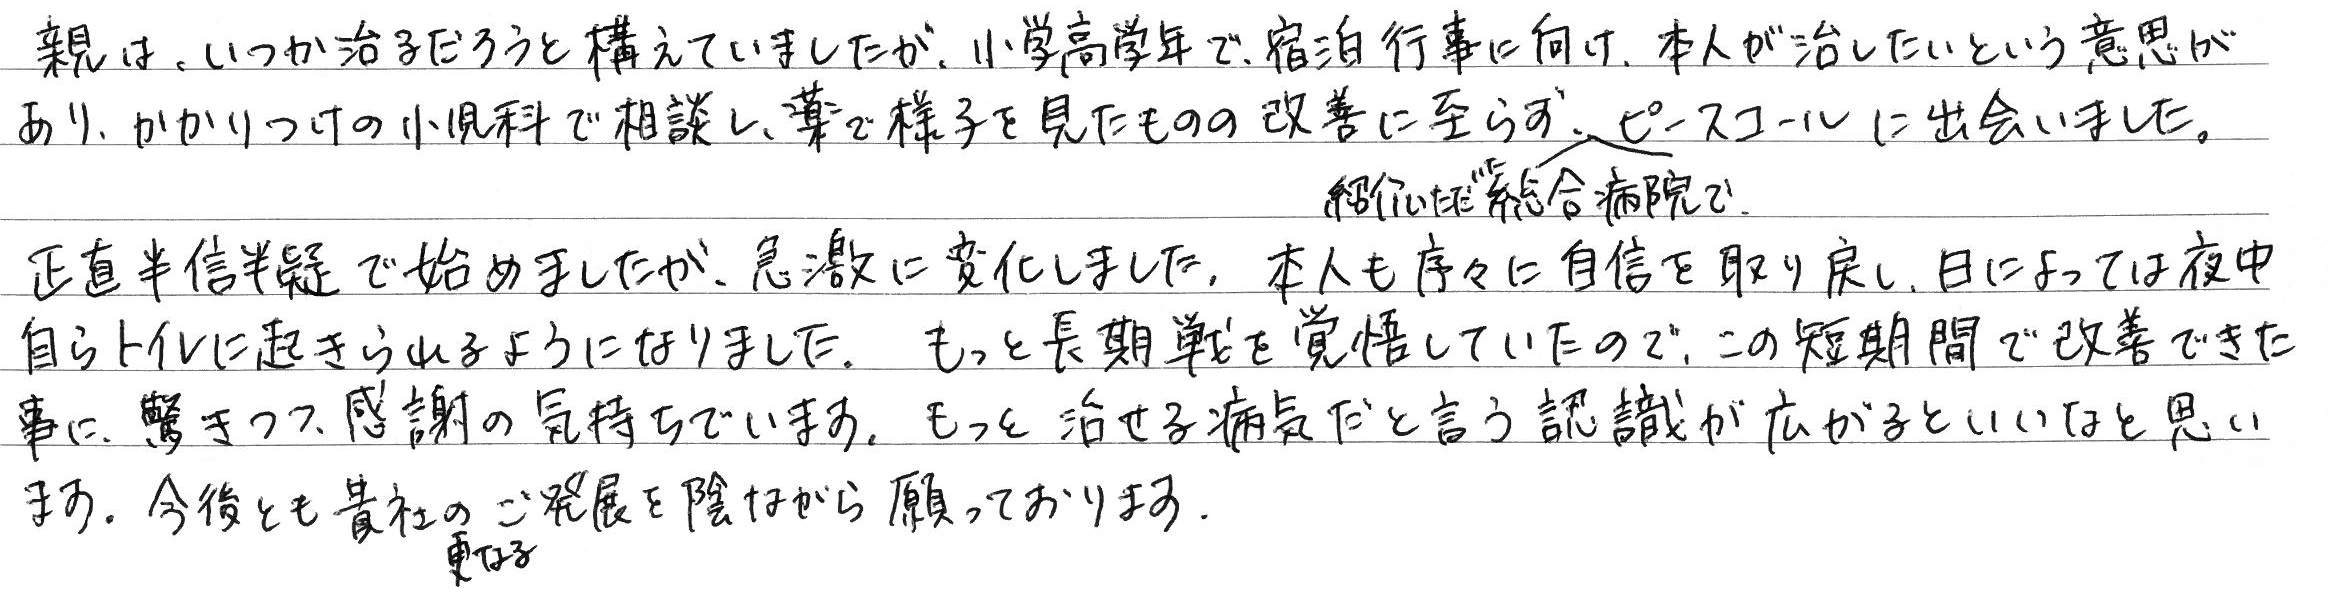 親は、いつか治るだろうと構えていましたが、小学高学年で、宿泊行事に向け、本人が治したいという意思が
あり、かかりつけの小児科で相談し、薬で様子を見たものの改善に至らず、ピースコールに出会いました。
紹介いただいた総合病院で、
正直半信半疑で始めましたが、急激に変化しました。本人も序々に自信を取り戻し、日によっては夜中
自らトイレに起きられるようになりました。もっと長期戦を覚悟していたので、この短期間で改善できた
事に、驚きつつ、感謝の気持ちでいます。もっと治せる病気だと言う認識が広がるといいなと思い
ます。今後とも貴社のご発展を陰ながら願っております。
更なる